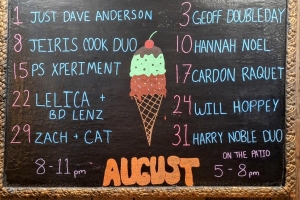 1 JUST DAVE ANDERSON
8 JEIRIS COOK DUO
15 PS XPERIMENT
22 LELICA +
BD LENZ
29 ZACH + CAT
8-11 pm
3 GEOFF DOUBLEDAY
10 HANNAH NOEL
17 CARDON RAQUET
24 WILL HOPPEY
31 HARRY NOBLE DUO
ON THE PATIO
5-8 pm
AUGUST